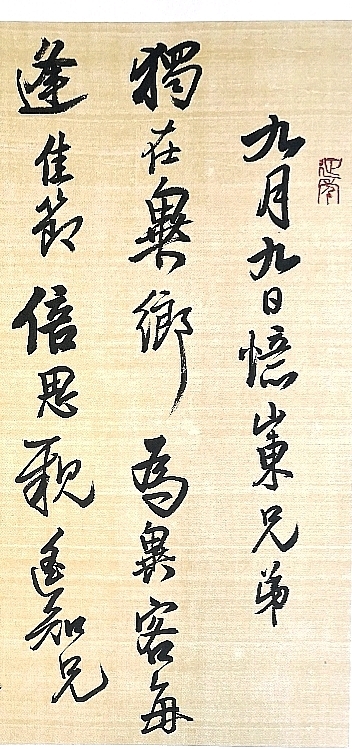 九月九日憶山東兄弟
獨在異鄉為異客每
逢佳節倍思親遙知兄